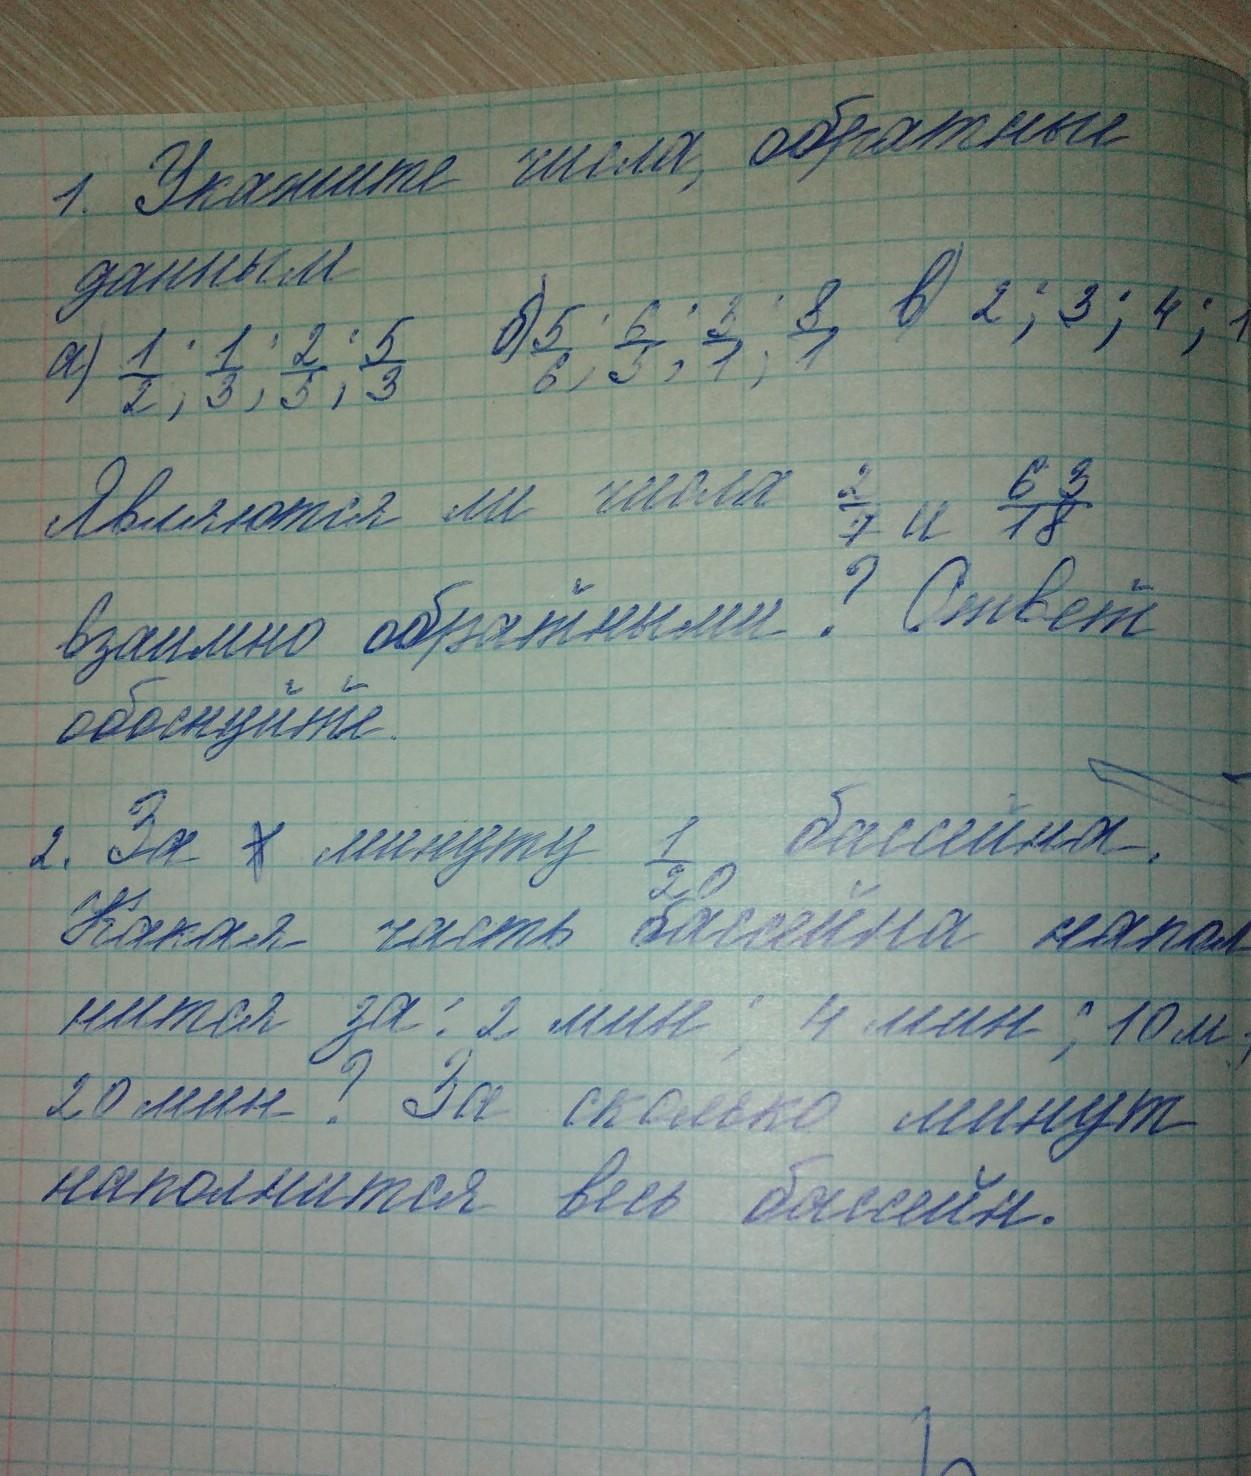 1. Укажите числа, обратные
данным
а) 1/2; 1/3; 2/5; 5/3 б) 5/6; 6/5; 3/1; 8/1 в) 2; 3; 4; 1
Являются ли числа 2/7 и 63/18
взаимно обратными? Ответ
обоснуйте.
2. За 1 минуту 1/20 бассейна.
Какая часть бассейна напол
нится за: 2 мин; 4 мин; 10 м;
20 мин? За сколько минут
наполнится весь бассейн.